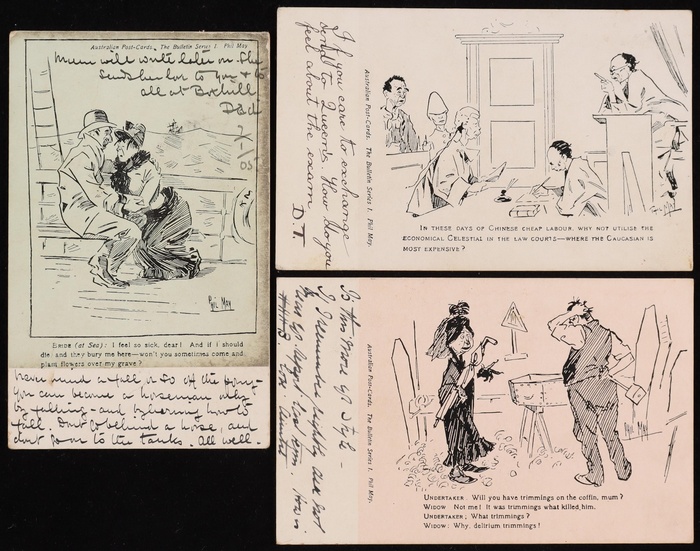 Australian Post-Cards. The Bulletin Series I. Phil May
Mum will write later on. She
Sends her love to you & to
all at Boxhill
Dad
05
PHIL MAY
BRIDE (at Sea): I feel so sick, dear! And if I should
die and they bury me here—won't you sometimes come and
plant flowers over my grave?
a fall or so off the pony—
You can become a horseman only
by falling—and by learning how to
fall. Don't go behind a horse, and
don't go in to the tanks. All well.
If you care to exchange
send to Queenie. How do you
feel about the exam
D.T.
Australian Post-Cards. The Bulletin Series I. Phil May.
PHIL MAY
IN THESE DAYS OF CHINESE CHEAP LABOUR, WHY NOT UTILISE THE
ECONOMICAL CELESTIAL IN THE LAW COURTS—WHERE THE CAUCASIAN IS
MOST EXPENSIVE?
Is this more yr style—
I
Australian Post-Cards. The Bulletin Series I. Phil May.
PHIL MAY
UNDERTAKER: Will you have trimmings on the coffin, mum?
WIDOW: Not me! It was trimmings what killed him.
UNDERTAKER: What trimmings?
WIDOW: Why, delirium trimmings!